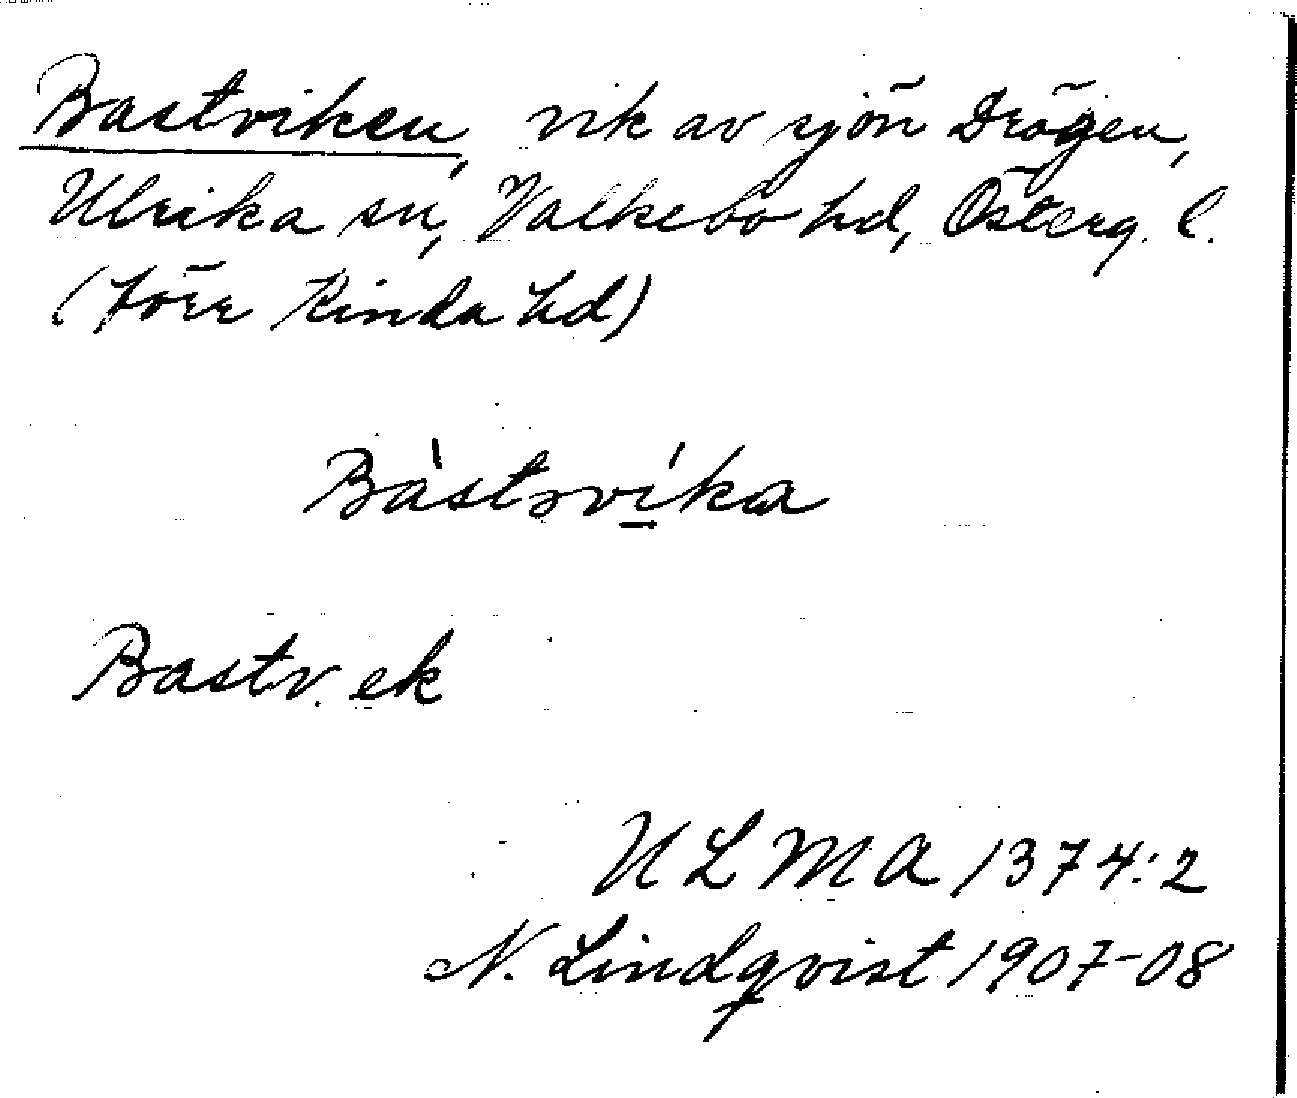 Bastviken, vik av sjön Drögen,
Ulrika sn, Valkebo hd, Österg. l.
(förr Kinda hd)
Bàstsví̲ka
Bastv. ek
ULMA 1374:2
N. Lindqvist 1907-08